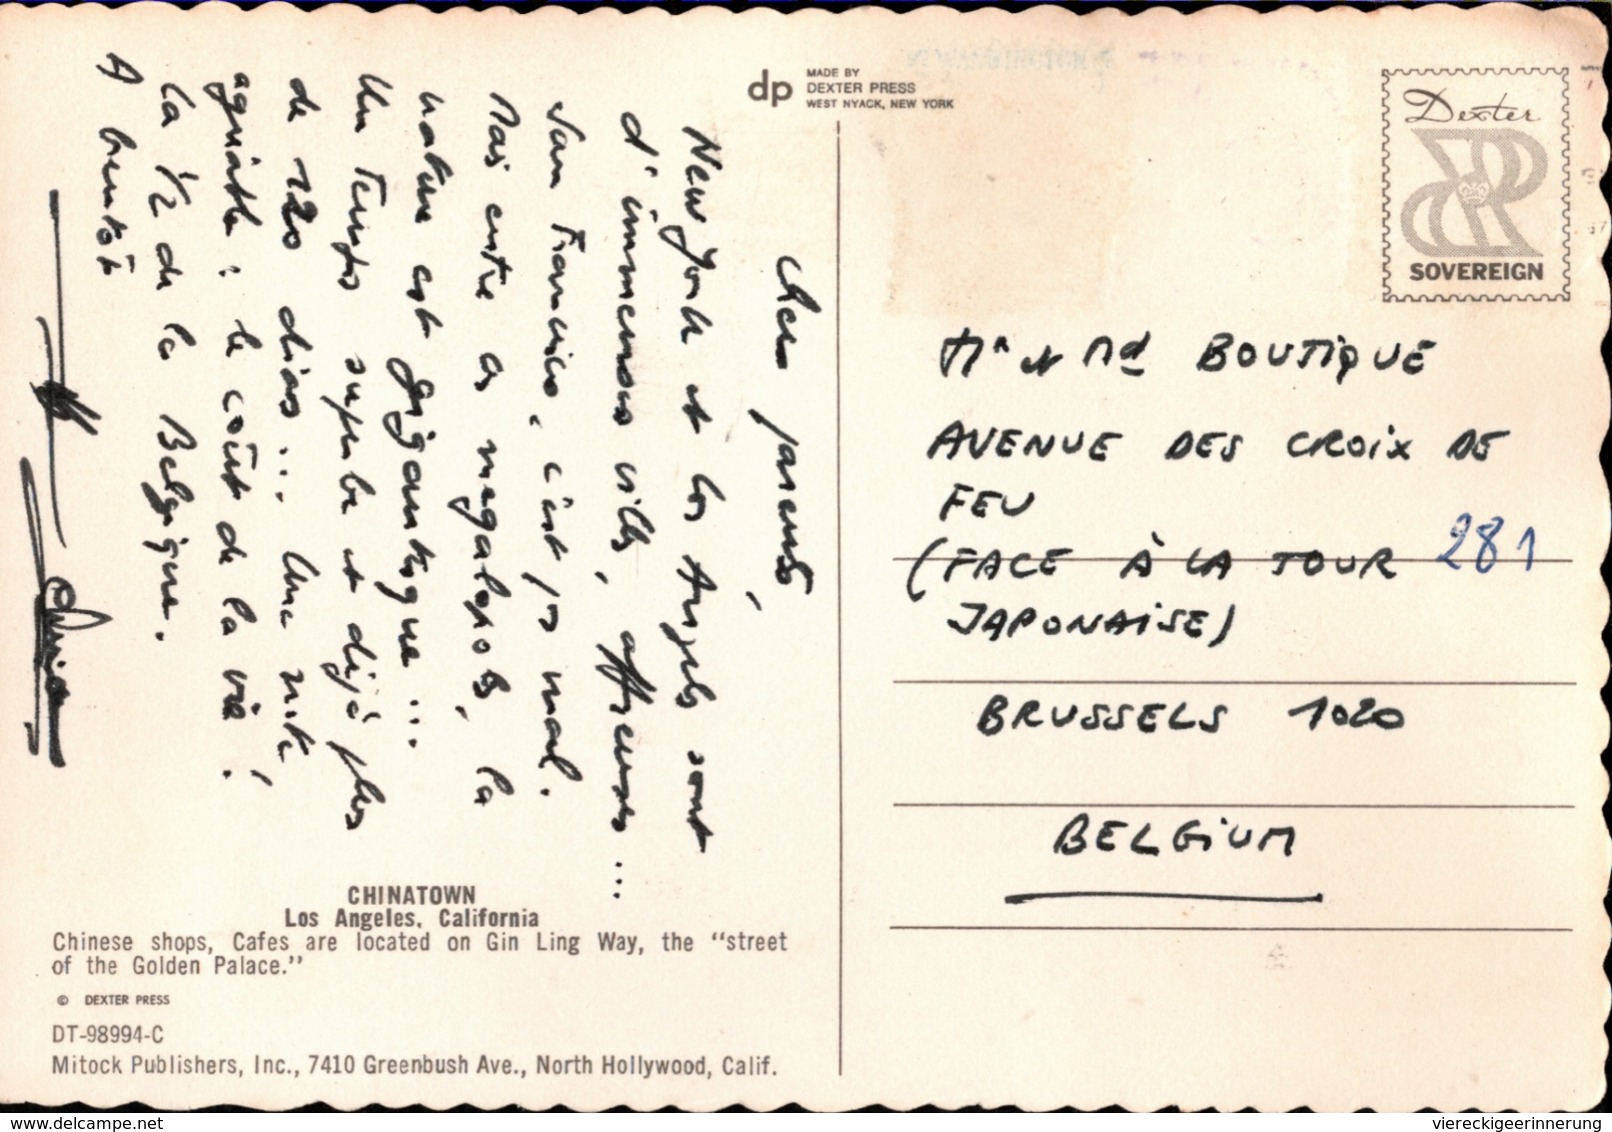 Chers parents,
New York et Los Angeles sont
d'immenses villes, affreuses...
San Francisco, c'est pas mal.
Mais entre ces megalopoles, la
nature est gigantesque...
Un temps superbe et déjà plus
de 120 dias... Une note
agréable : le coût de la vie !
la 1/2 de la Belgique.
A bientôt
dp
MADE BY
DEXTER PRESS
WEST NYACK, NEW YORK
Dexter
SOVEREIGN
BOUTIQUE
AVENUE DES CROIX DE
FEU
(FACE À LA TOUR 281
JAPONAISE)
BRUSSELS 1020
BELGIUM
CHINATOWN
Los Angeles, California
Chinese shops, Cafes are located on Gin Ling Way, the "street
of the Golden Palace."
© DEXTER PRESS
DT-98994-C
Mitock Publishers, Inc., 7410 Greenbush Ave., North Hollywood, Calif.
viereckigeerinnerung